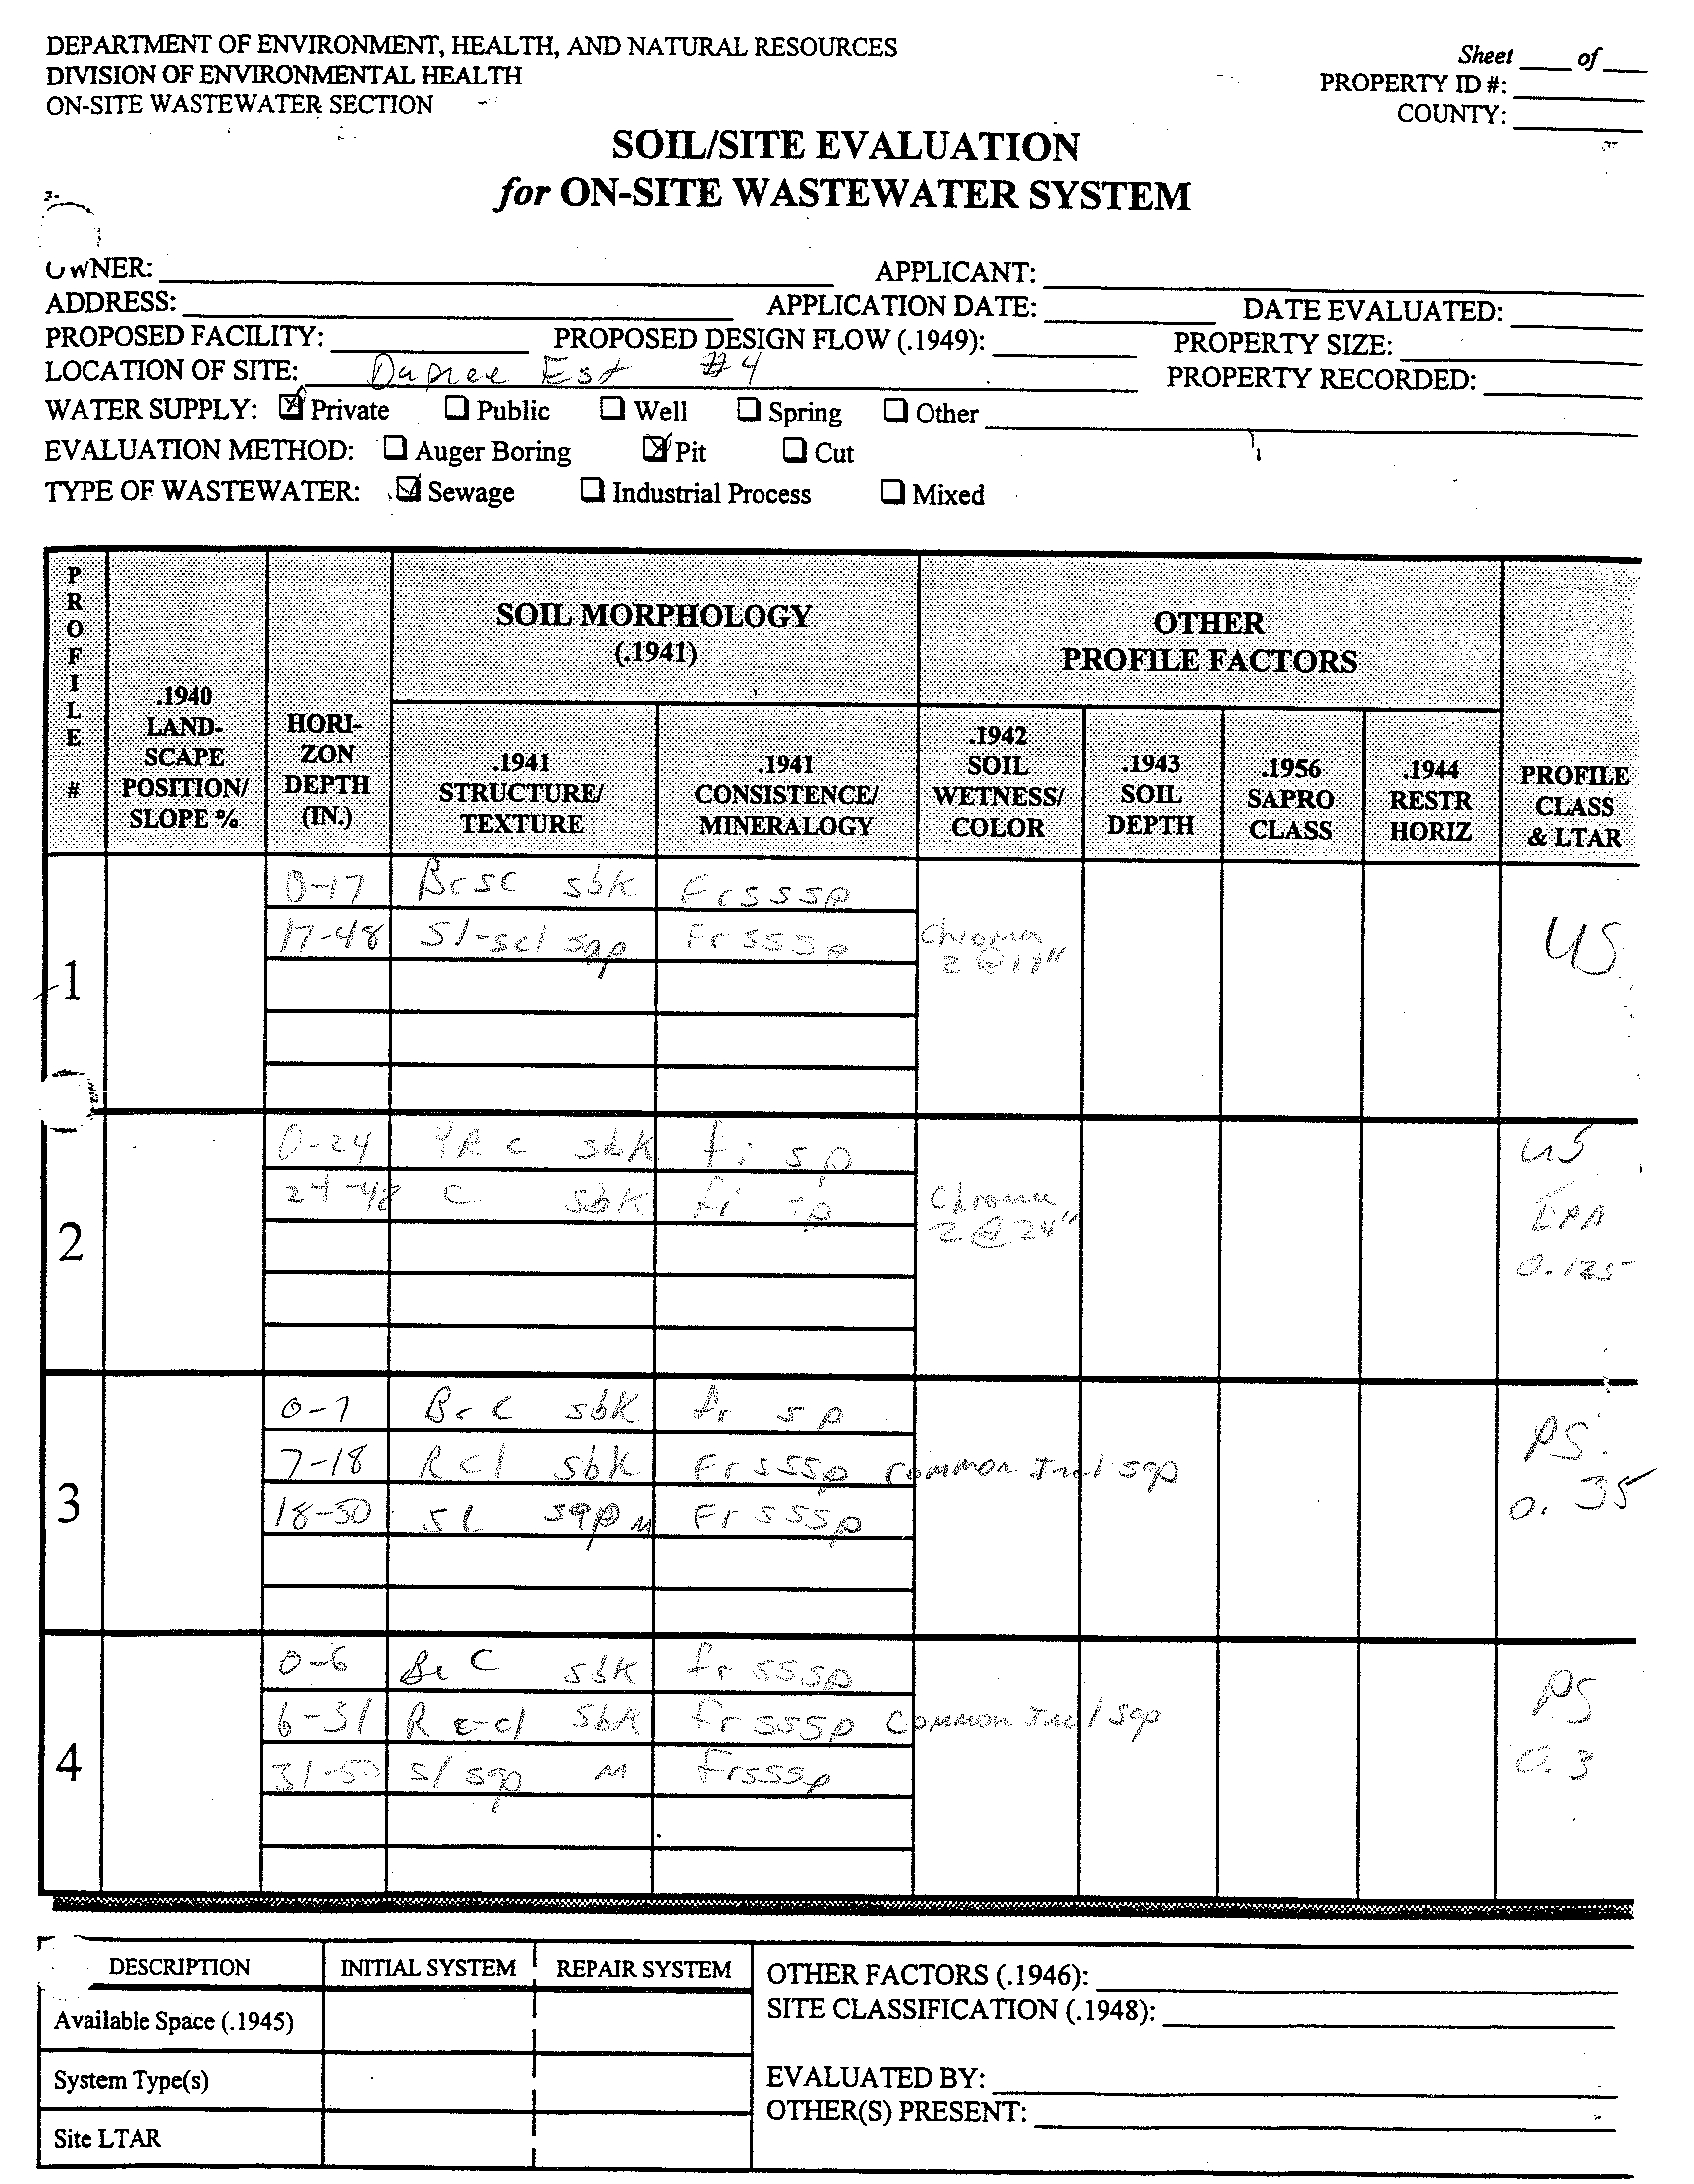 DEPARTMENT OF ENVIRONMENT, HEALTH, AND NATURAL RESOURCES
DIVISION OF ENVIRONMENTAL HEALTH
ON-SITE WASTEWATER SECTION
Sheet ____ of ____
PROPERTY ID #:
COUNTY:
SOIL/SITE EVALUATION
for ON-SITE WASTEWATER SYSTEM
OWNER: APPLICANT:
ADDRESS: APPLICATION DATE: DATE EVALUATED:
PROPOSED FACILITY: PROPOSED DESIGN FLOW (.1949): PROPERTY SIZE:
LOCATION OF SITE: Dupree Est #4 PROPERTY RECORDED:
WATER SUPPLY: ☒ Private ☐ Public ☐ Well ☐ Spring ☐ Other
EVALUATION METHOD: ☐ Auger Boring ☒ Pit ☐ Cut
TYPE OF WASTEWATER: ☒ Sewage ☐ Industrial Process ☐ Mixed
PROFILE #
.1940 LAND-SCAPE POSITION/ SLOPE %
HORI-ZON DEPTH (IN.)
SOIL MORPHOLOGY (.1941)
.1941 STRUCTURE/ TEXTURE
.1941 CONSISTENCE/ MINERALOGY
OTHER PROFILE FACTORS
.1942 SOIL WETNESS/ COLOR
.1943 SOIL DEPTH
.1956 SAPRO CLASS
.1944 RESTR HORIZ
PROFILE CLASS & LTAR
1
0-17 Br sc sbk Fr ss sp
17-48 Sl-scl sap Fr ss sp Chroma 2 @ 17" US
2
0-24 YR c sbk fi s p US
24-48 c sbk fi sp Chroma 2 @ 24" LPP 0.125
3
0-7 Br c sbk fr s p PS
7-18 R cl sbk Fr ss sp Common Incl sap 0.35
18-50 SL sap M Fr ss sp
4
0-6 Br C sbk fr ss sp PS
6-31 R c-cl sbk fr ss sp Common Incl sap
31-50 sl sap M Fr ss sp 0.3
DESCRIPTION INITIAL SYSTEM REPAIR SYSTEM
Available Space (.1945)
System Type(s)
Site LTAR
OTHER FACTORS (.1946):
SITE CLASSIFICATION (.1948):
EVALUATED BY:
OTHER(S) PRESENT: